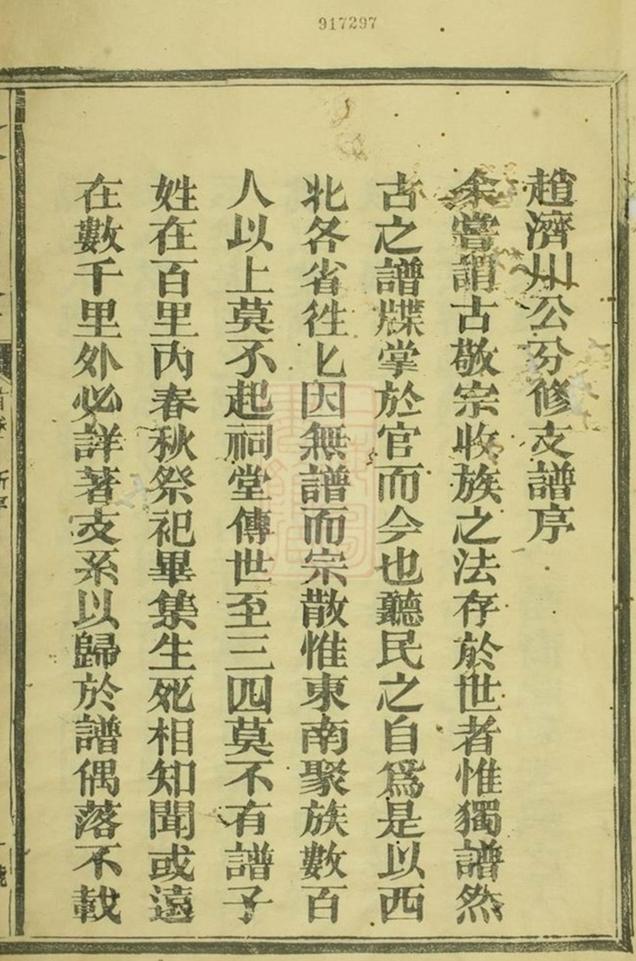 917297
趙濟川公分修支譜序
余嘗謂古敬宗收族之法存於世者惟獨譜然
古之譜牒掌於官而今也聽民之自爲是以西
北各省徃匕因無譜而宗散惟東南聚族數百
人以上莫不起祠堂傳世至三四莫不有譜子
姓在百里內春秋祭祀畢集生死相知聞或遠
在數千里外必詳著支系以歸於譜偶落不載